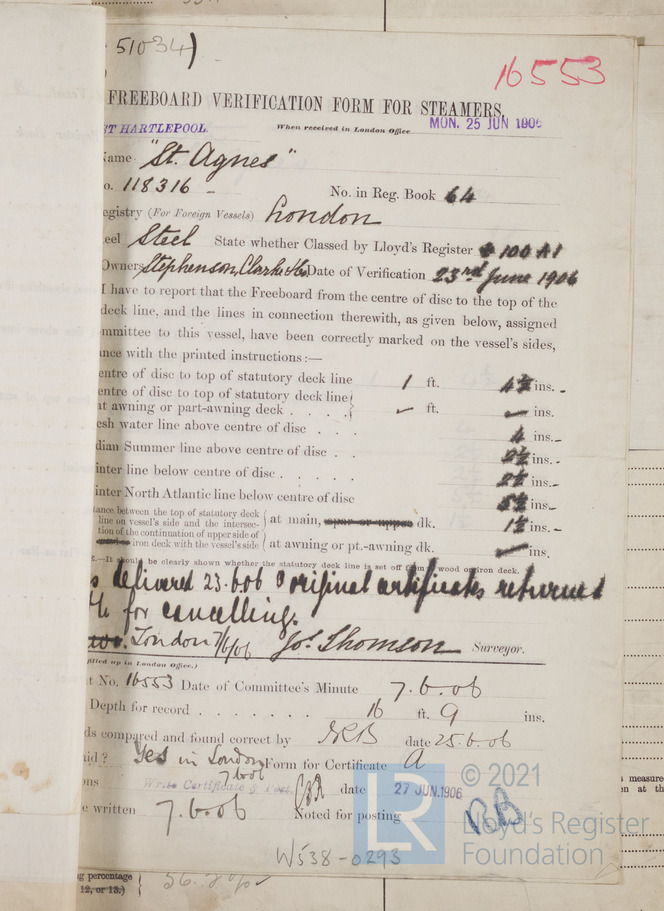 51034)
16553
FREEBOARD VERIFICATION FORM FOR STEAMERS.
ST HARTLEPOOL. When received in London Office MON. 25 JUN 1906
Name "St. Agnes"
o. 118316 - No. in Reg. Book 64
egistry (For Foreign Vessels) London
eel Steel State whether Classed by Lloyd's Register 100 A1
Owners Stephenson, Clarke & Co Date of Verification 23rd June 1906
I have to report that the Freeboard from the centre of disc to the top of the
deck line, and the lines in connection therewith, as given below, assigned
mmittee to this vessel, have been correctly marked on the vessel's sides,
nce with the printed instructions:—
entre of disc to top of statutory deck line 1 ft. 4½ ins.
entre of disc to top of statutory deck line
at awning or part-awning deck . . . . ft. ins.
esh water line above centre of disc . . . 4 ins.
dian Summer line above centre of disc . . 2½ ins.
inter line below centre of disc . . . . . 2½ ins.
inter North Atlantic line below centre of disc 5½ ins.
tance between the top of statutory deck
line on vessel's side and the intersec- at main, spar or upper dk. 1½ ins.
tion of the continuation of upper side of
iron deck with the vessel's side at awning or pt.-awning dk. ins.
.—It should be clearly shown whether the statutory deck line is set off from wood or iron deck.
delivered 23.6.06 & original certificates returned
for cancelling.
London 7/6/06 Jos. Thomson Surveyor.
filled up in London Office.)
t No. 16553 Date of Committee's Minute 7.6.06
Depth for record . . . . . . . 16 ft. 9 ins.
ds compared and found correct by date 25.6.06
aid? Yes in London Form for Certificate A
7.6.06
ons Write Certificate & date 27 JUN.1906
e written 7.6.06 Noted for posting
W538-0293
© 2021
LR
Lloyd's Register
Foundation
ng percentage
12, or 13.)
s measure
en at th